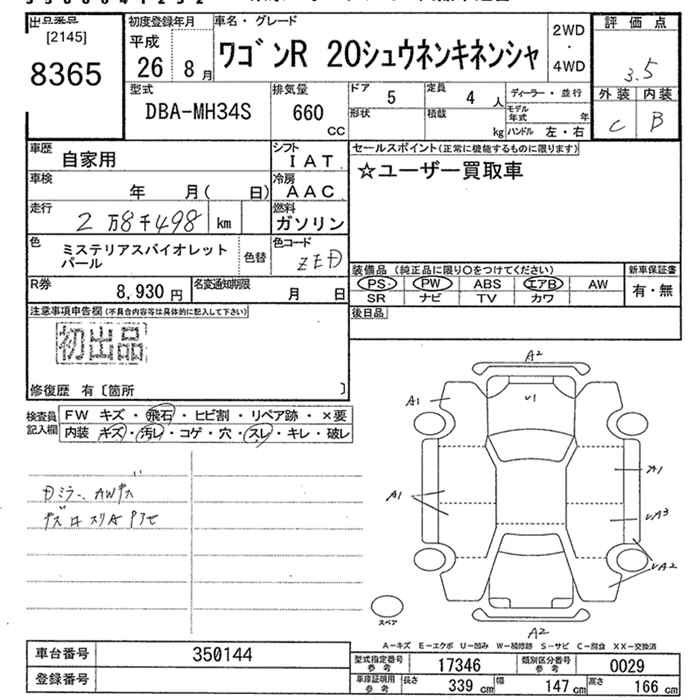 出品番号
[2145]
8365
初度登録年月
平成
26 8月
車名・グレード
ワゴンR 20シュウネンキネンシャ
2WD
・
4WD
評価点
3.5
外装 内装
C B
型式
DBA-MH34S
排気量
660
CC
ドア 5
定員 4人
形状
積載 kg
ディーラー・並行
モデル年式 年
ハンドル 左・右
車歴 自家用
シフト
IAT
車検 年 月( 日)
冷房
AAC
走行 2万8千498 km
燃料
ガソリン
色 ミステリアスバイオレット
パール
色替
色コード
ZED
R券 8,930円
名変通知期限 月 日
セールスポイント(正常に機能するものに限ります)
☆ユーザー買取車
装備品(純正品に限り○をつけてください)
PS PW ABS エアB AW
SR ナビ TV カワ
新車保証書
有・無
後日品
注意事項申告欄(不具合内容等は具体的に記入して下さい)
初出品
修復歴 有〔箇所 〕
検査員記入欄
FW キズ・飛石・ヒビ割・リペア跡・×要
内装 キズ・汚レ・コゲ・穴・スレ・キレ・破レ
A2
A1
U1
A1
A1
A2
スペア
A2
A-キズ E-エクボ U-凹み W-補修跡 S-サビ C-腐食 XX-交換済
車台番号 350144
登録番号
型式指定番号参考 17346
類別区分番号参考 0029
車庫証明用参考 長さ 339cm 幅 147cm 高さ 166cm